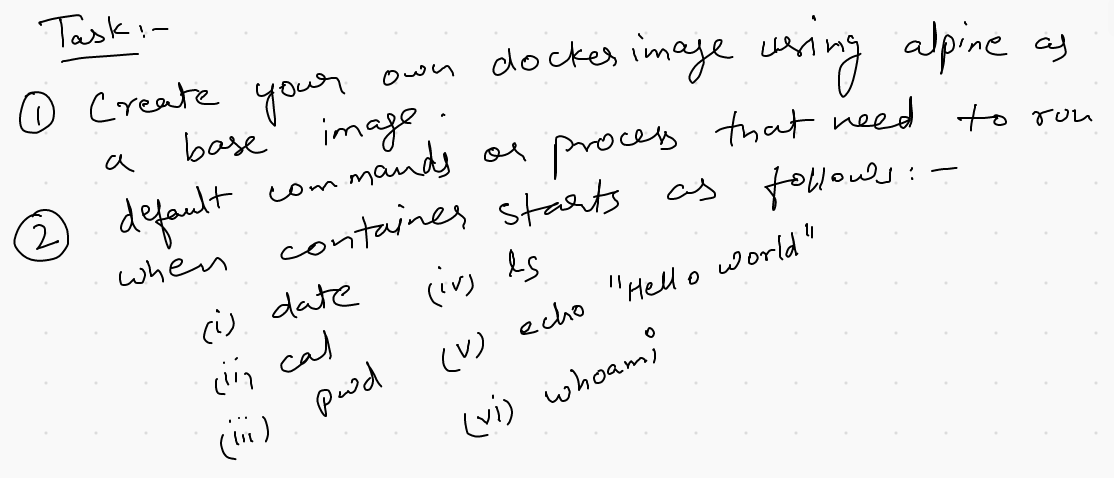 Task :-
① Create your own docker image using alpine as
a base image.
② default commands or process that need to run
when container starts as follows :-
(i) date (iv) ls
(ii) cal (v) echo "Hello world"
(iii) pwd (vi) whoami